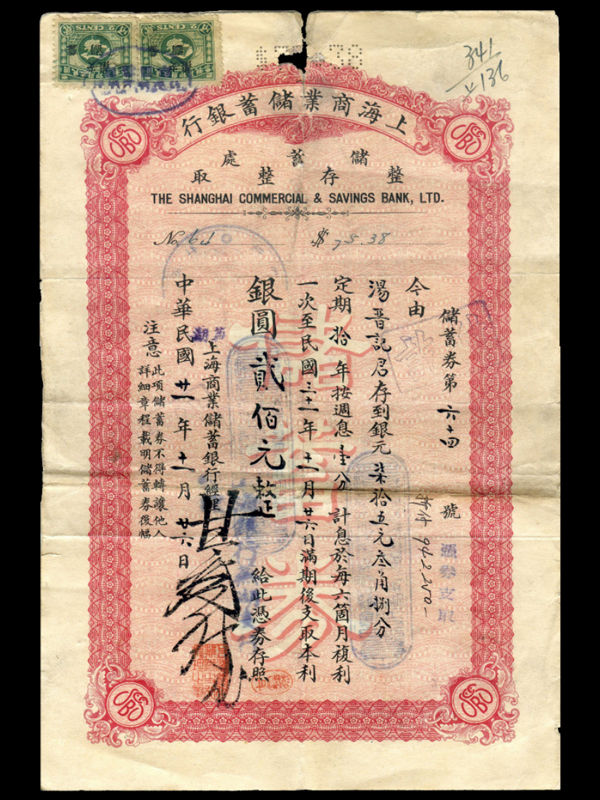 $75.38
341
136
行銀蓄儲業商海上
處蓄儲
取整存整
THE SHANGHAI COMMERCIAL & SAVINGS BANK, LTD.
$ 75.38
儲蓄券第 六十四 號
憑券支取
今由
湯晋記君存到銀元柒拾五元叁角捌分
定期拾年按週息壹分計息於每六箇月複利
一次至民國三十一年十一月廿六日滿期後支取本利
銀圓貳佰元整
給此憑券存照
上海商業儲蓄銀行經理
中華民國廿一年十一月廿六日
注意
此項儲蓄券不得轉讓他人
詳細章程載明儲蓄券後幅